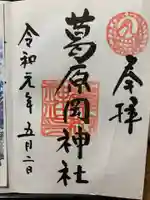 奉拝
葛原岡神社
令和元年五月二日